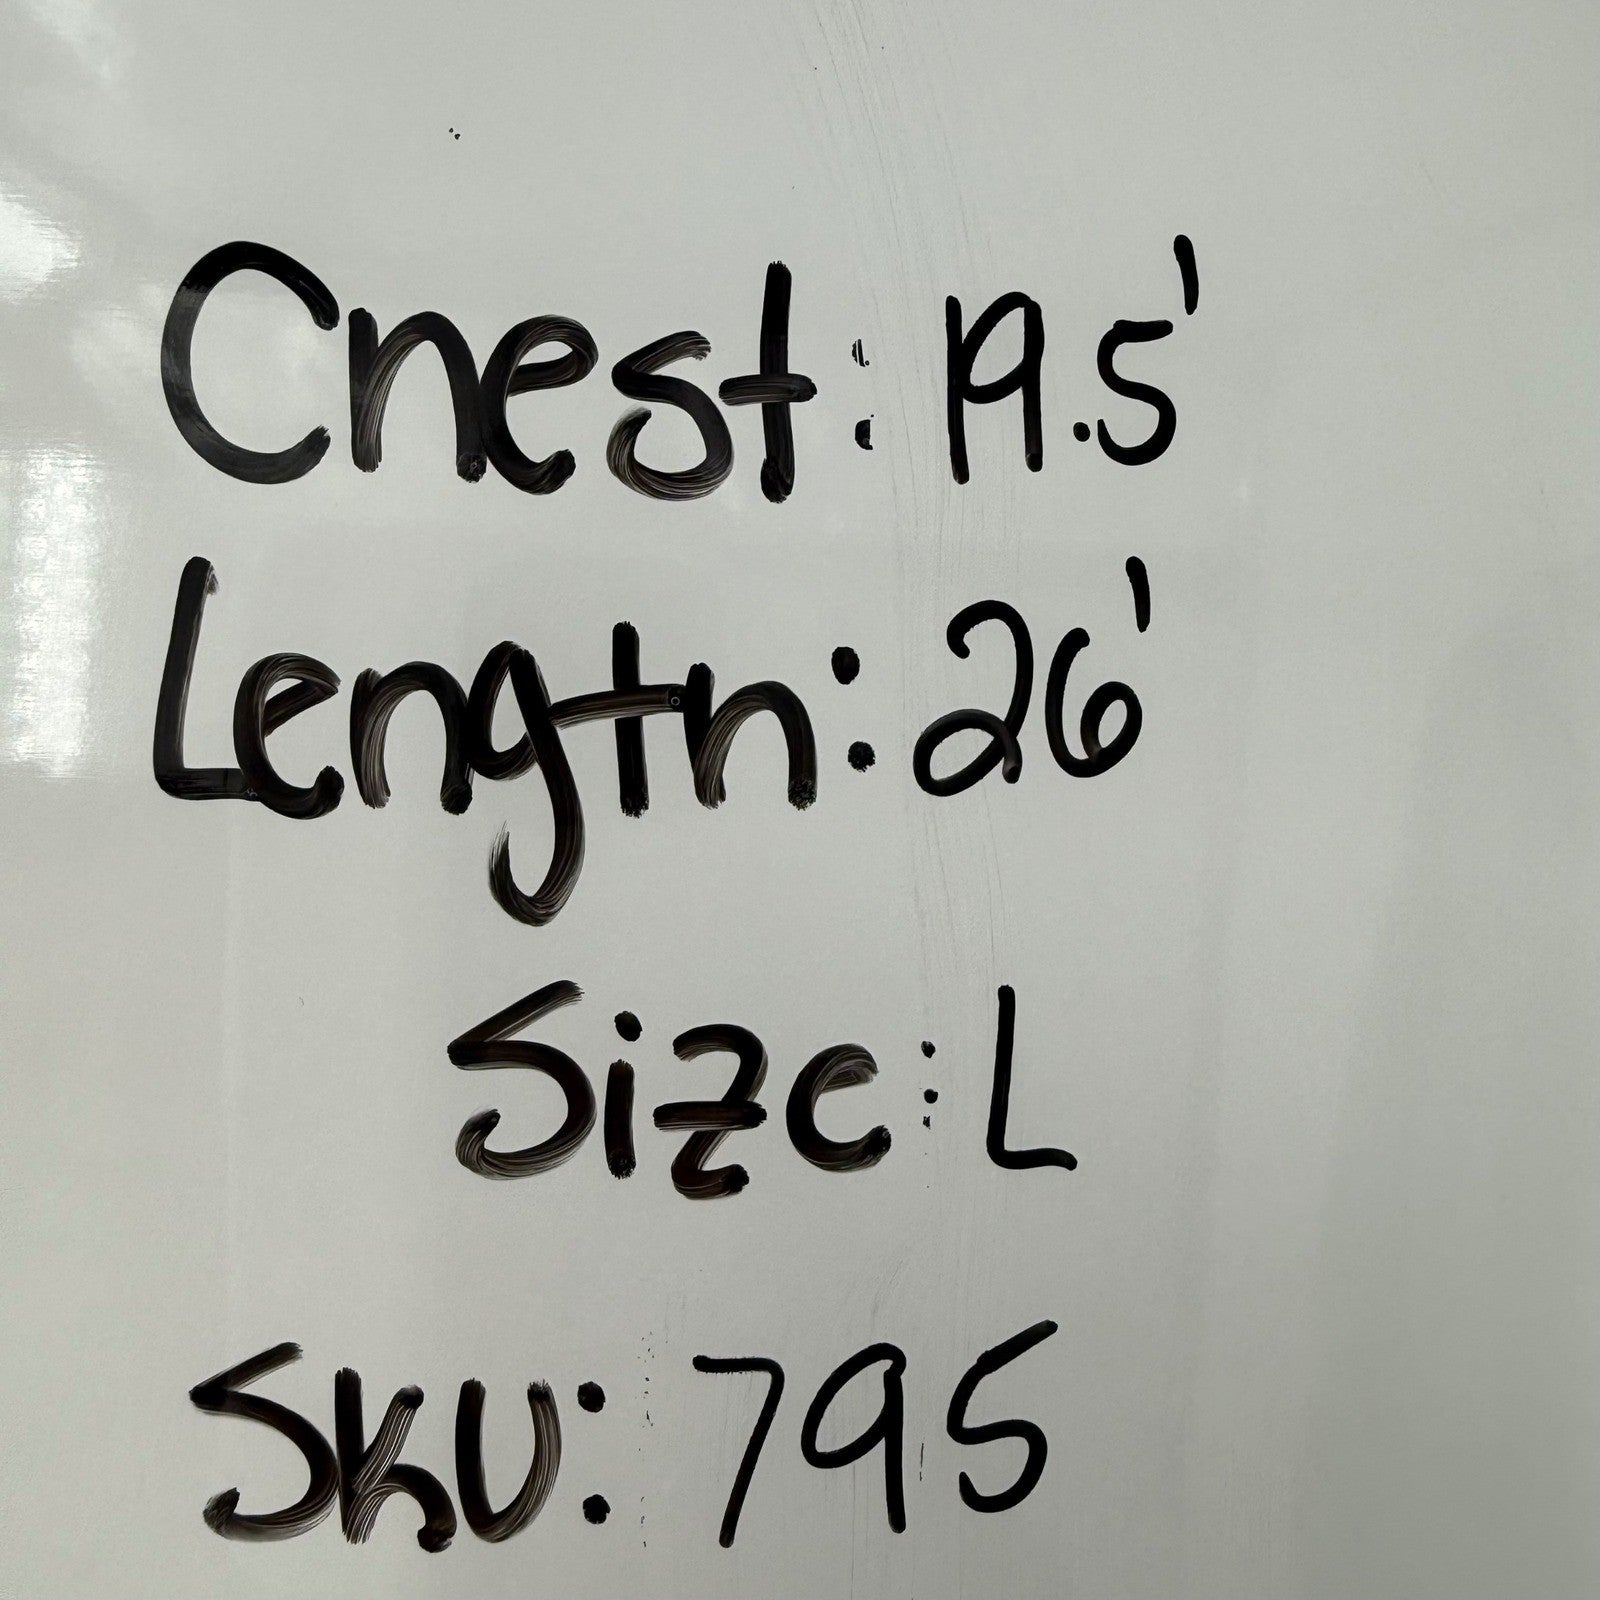 Chest: 19.5'
Length: 26'
Size: L
SKU: 795